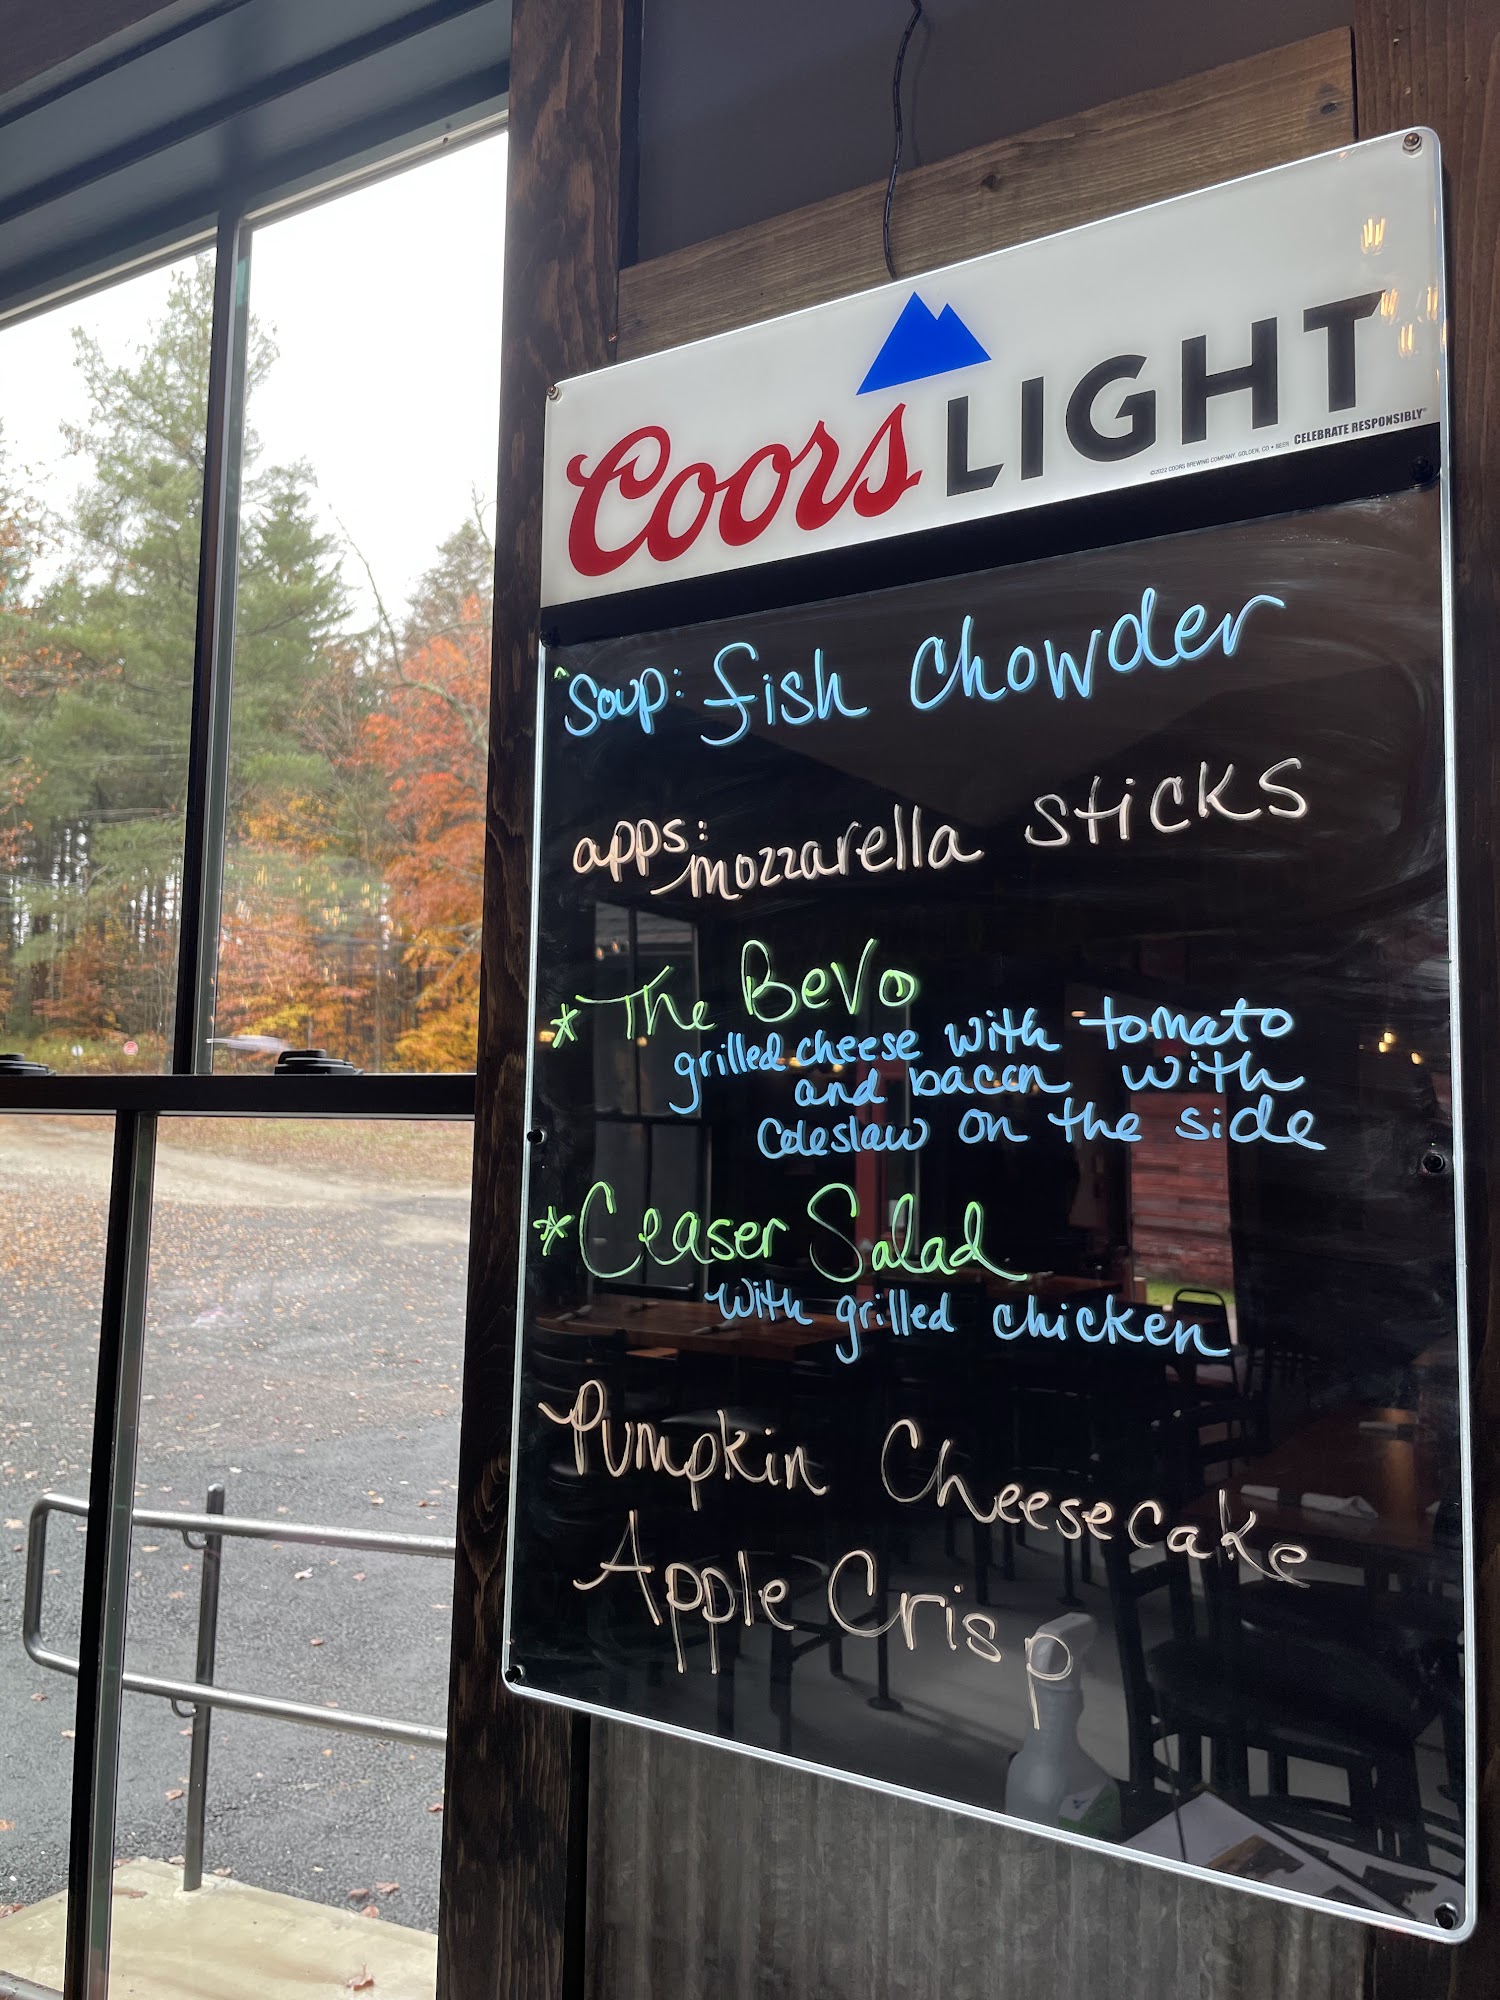 Coors LIGHT
©2022 COORS BREWING COMPANY, GOLDEN, CO • BEER CELEBRATE RESPONSIBLY®
Soup: fish chowder
apps: mozzarella sticks
* The Bevo
grilled cheese with tomato
and bacon with
Coleslaw on the side
* Ceaser Salad
with grilled chicken
Pumpkin Cheesecake
Apple Crisp